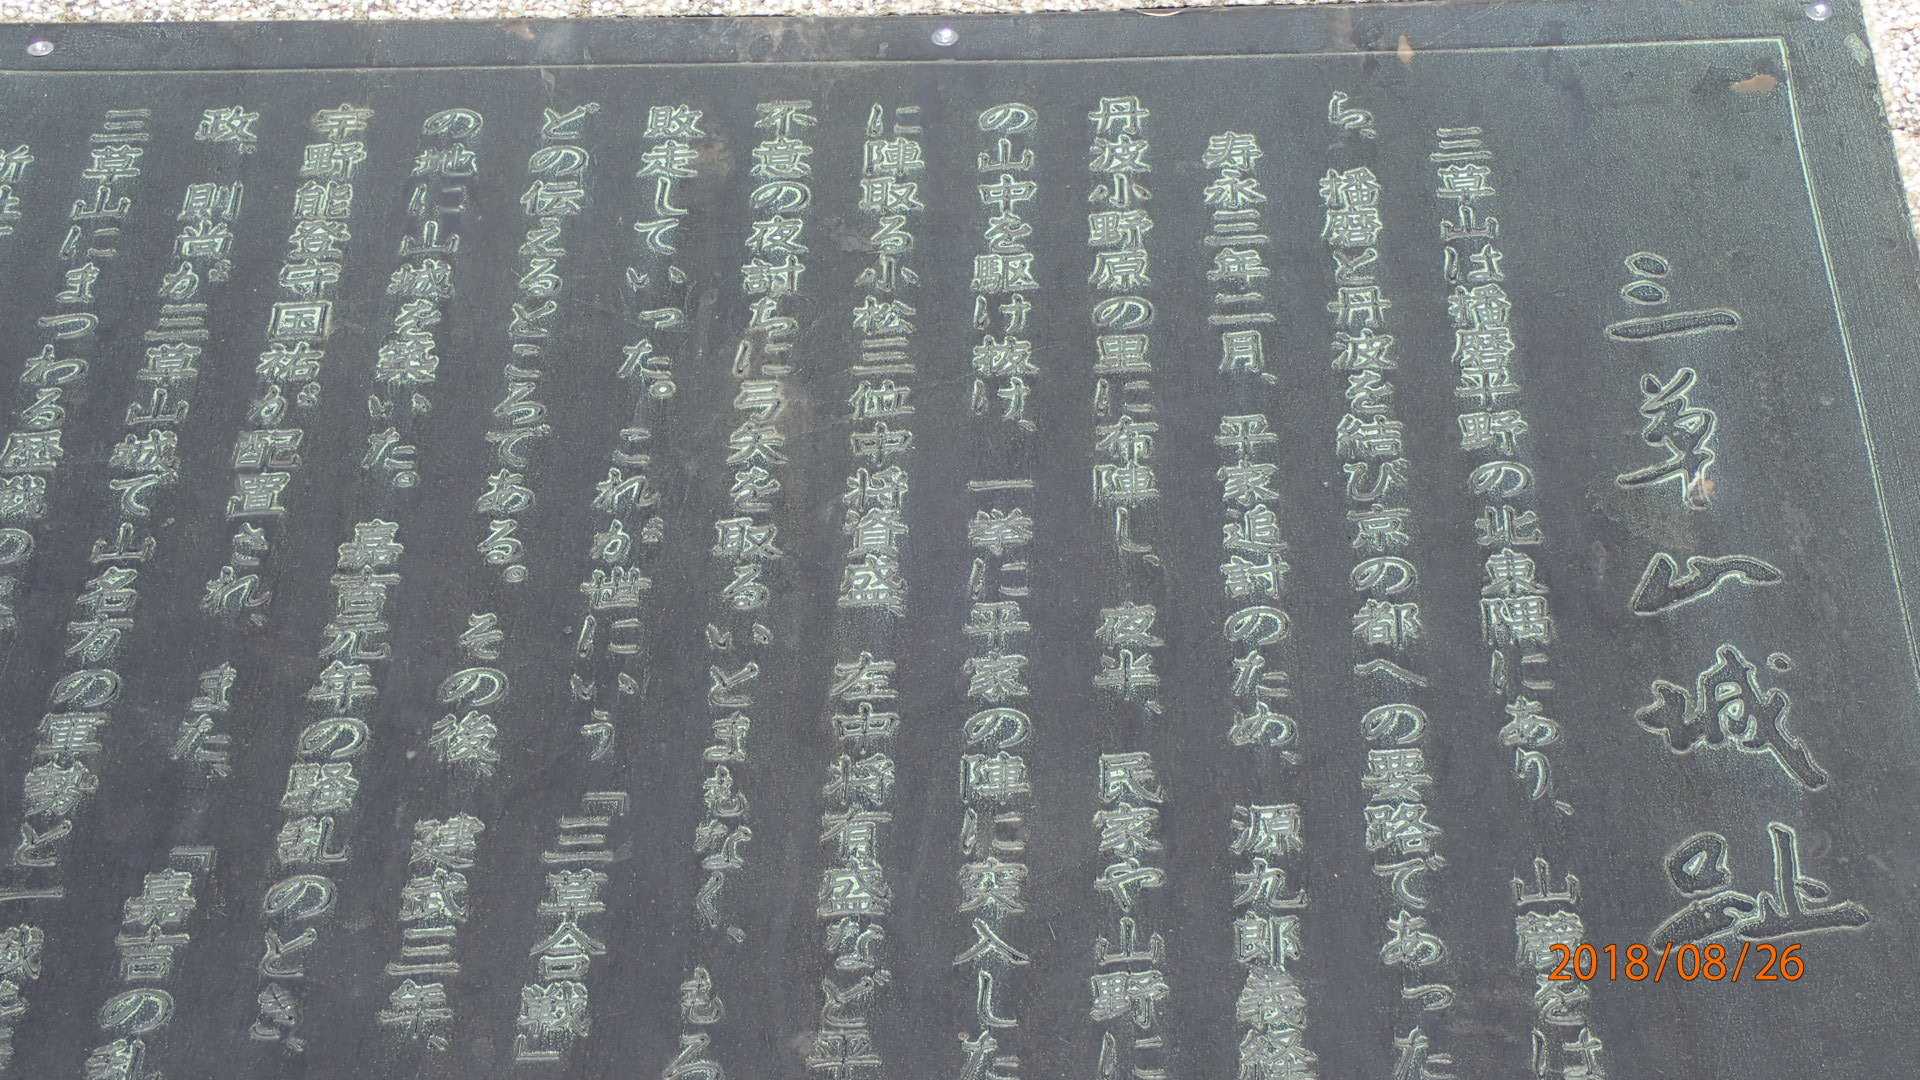 三草山城址
三草山は播磨平野の北東隅にあり、山麓をは
ら、播磨と丹波を結び京の都への要路であった
寿永三年二月、平家追討のため、源九郎義経
丹波小野原の里に布陣し、夜半、民家や山野に
の山中を駆け抜け、一挙に平家の陣に突入した
に陣取る小松三位中将資盛 左中将有盛など平
不意の夜討ちに弓矢を取るいとまもなく、もろ
敗走していった。これが世にいう「三草合戦」
どの伝えるところである。その後、建武三年、
の地に山城を築いた。嘉吉元年の騒乱のとき、
宇野能登守国祐が配置され、また、「嘉吉の乱
政、則尚が三草山城で山名方の軍勢と一戦
三草山にまつわる歴戦の
2018/08/26